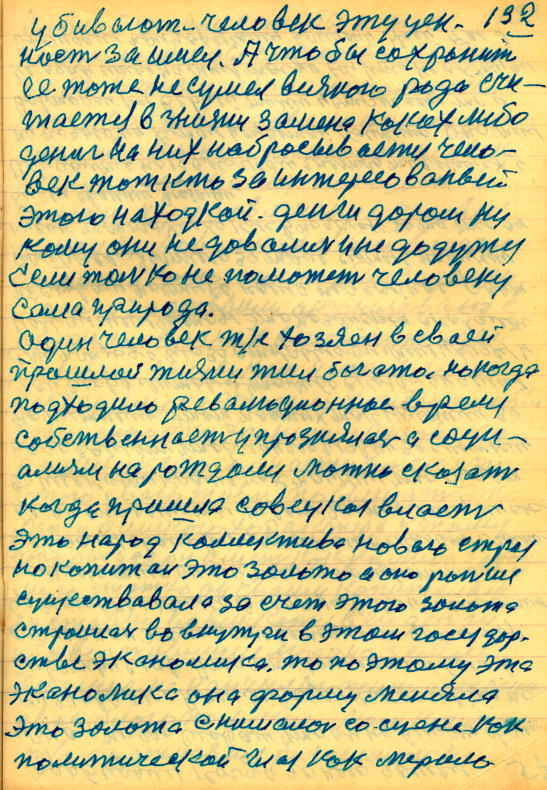 192
убивают. человек эту цен-
ност заимел. А чтобы сохранит
ее тоже не сумел всякого рода счи-
тается в жизни замена каких либо
денег на них набрасывается чело-
век тот кто заинтересованый
этого находкой. денги даром ни
кому они не довались и не дадутся
если только не поможет человеку
сама природа.
один человек т/к хозяен в своей
прошлой жизни жил богато, но когда
подходило революционное время
собственность и прозиялась а соци-
ализм нарождался можно сказать
когда пришла советская власть
это народ коллектива нового строя
но капитал это золото а оно раньше
существавала за счет этого золота
строилась во внутри в этом государ-
стве эканомика. то поэтому эта
эканомика она форму меняла
это золота снималось со сцене как
политический глаз как мерило